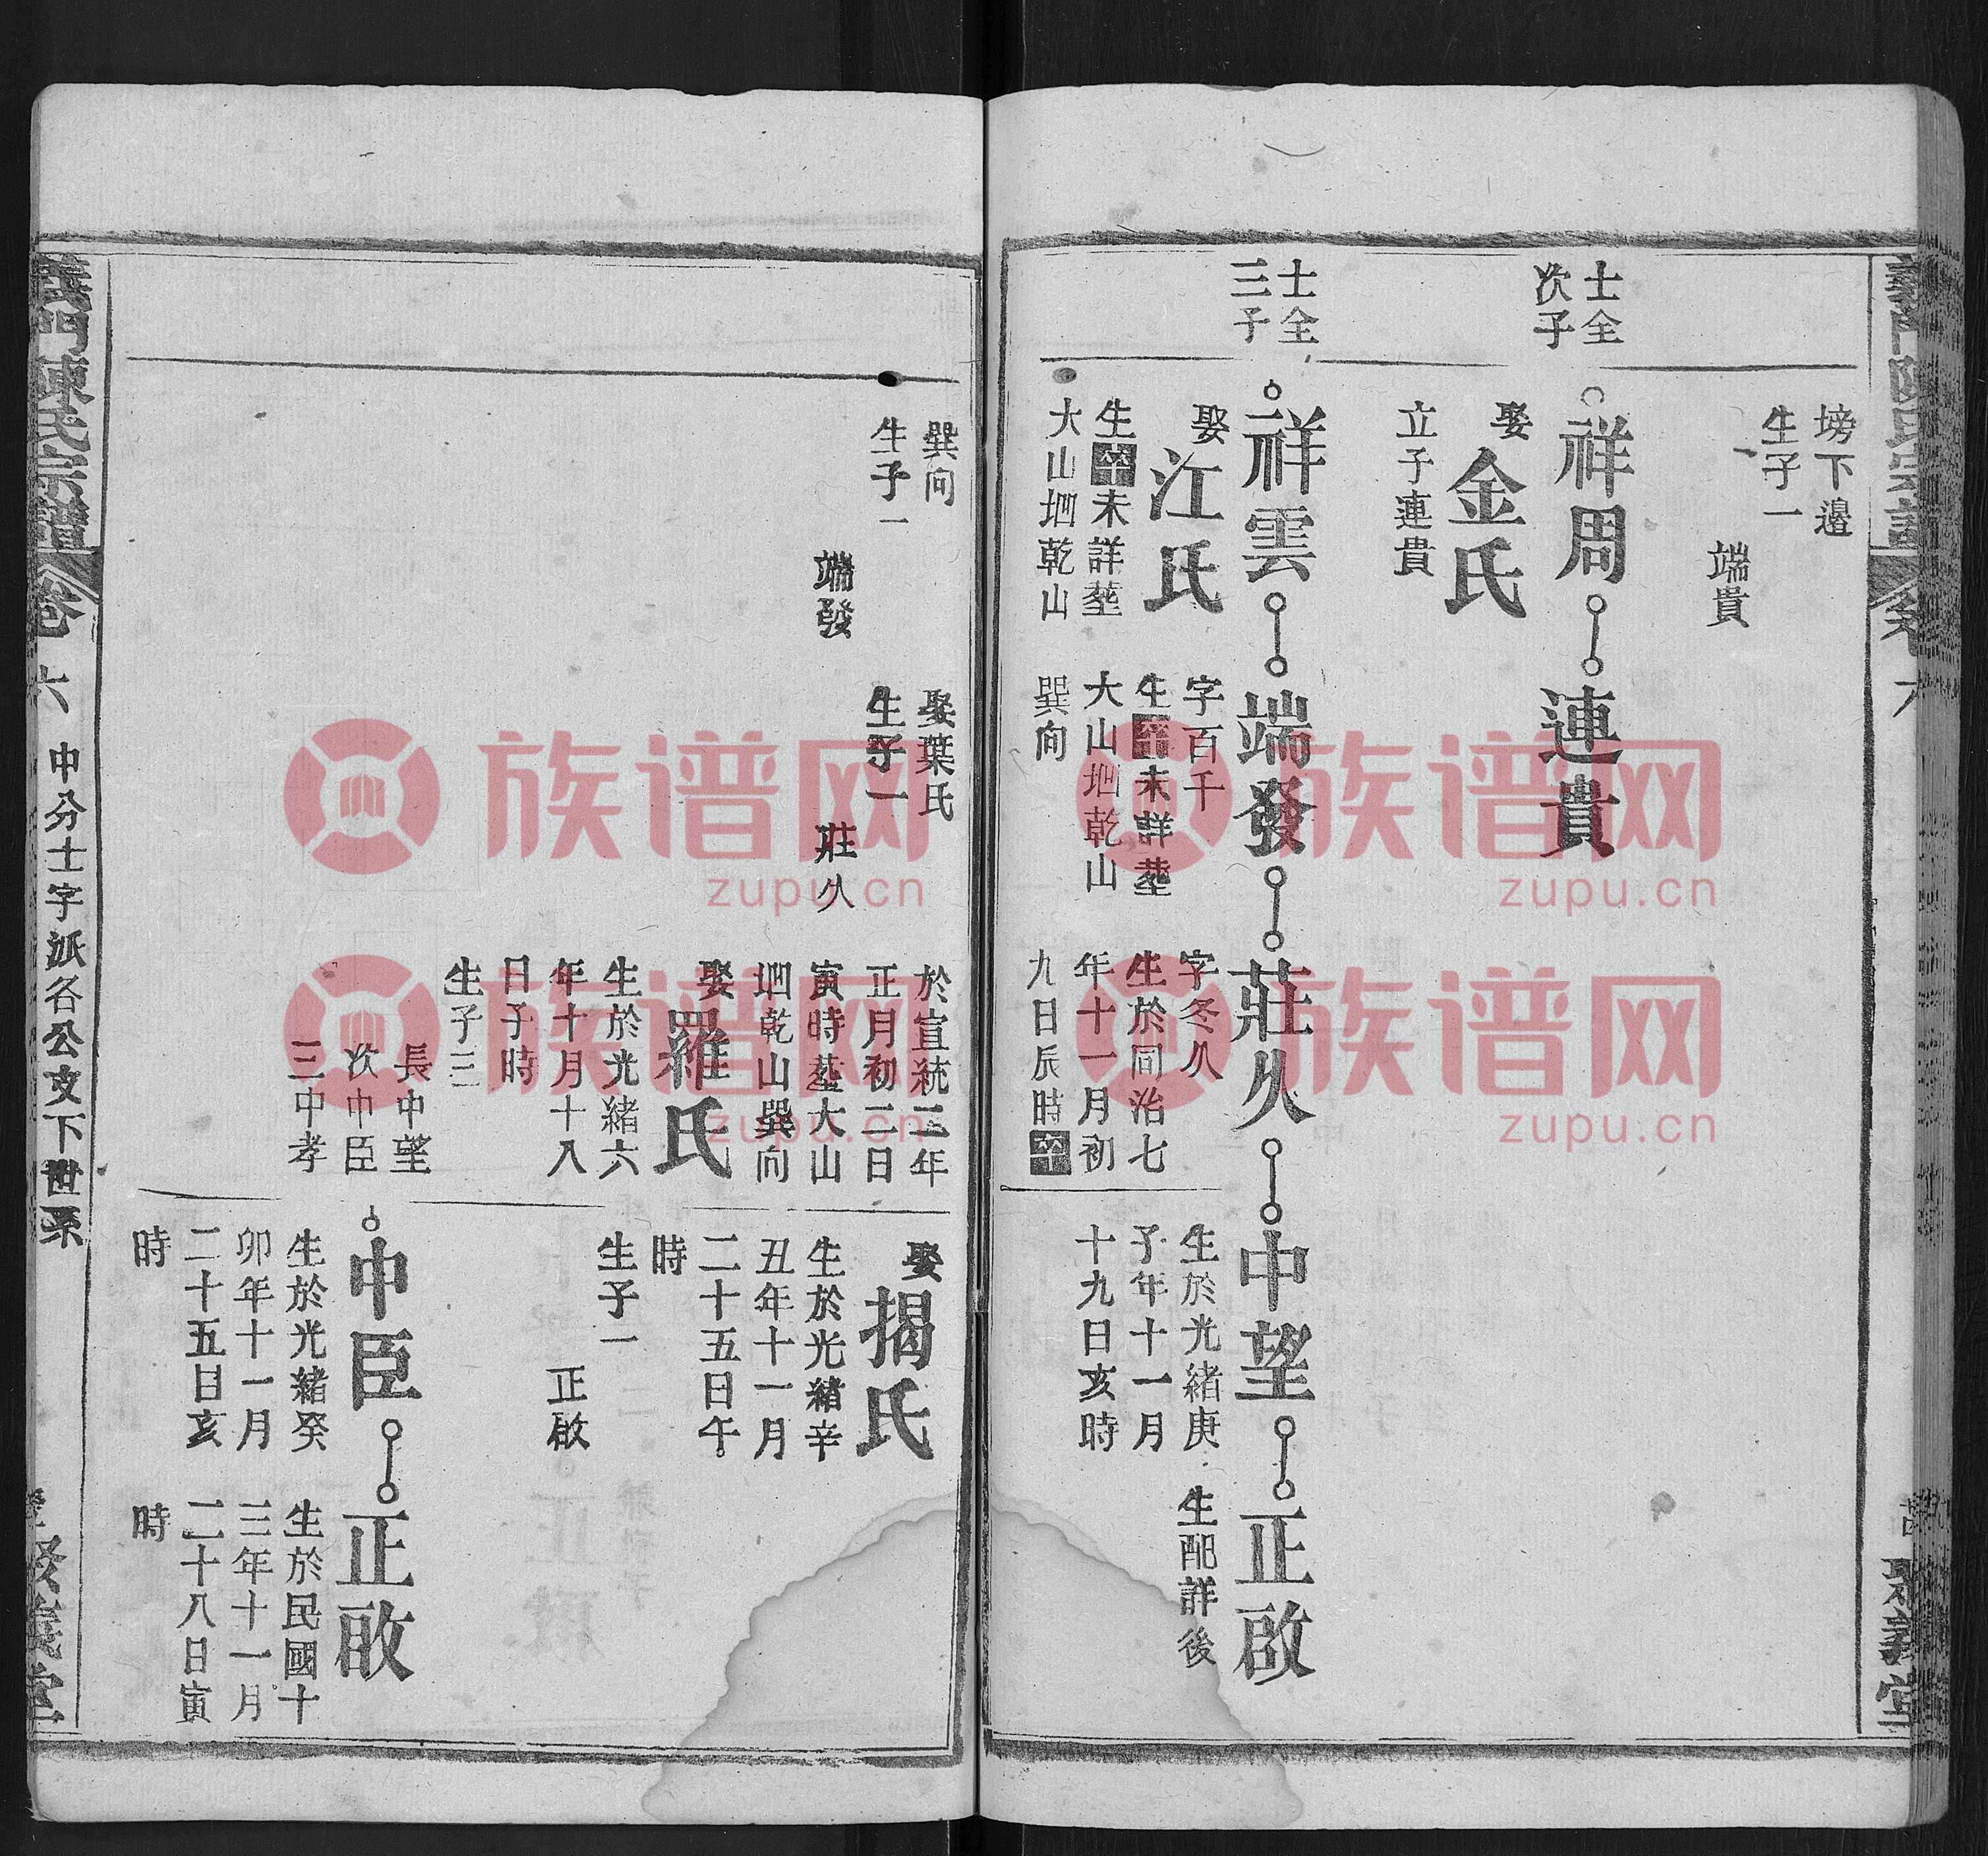 塝下邉
生子一
端貴
士全
次子
祥周
連貴
娶金氏
立子連貴
士全
三子
祥雲
端發
莊久
中望
正啟
娶江氏
生卒未詳塟
大山垇乾山
字百千
生卒未詳塟
大山垇乾山
巽向
字冬久
生於同治七
年十一月初
九日辰時卒
生於光緒庚
子年十一月
十九日亥時
生配詳後
聚義堂
巽向
生子一
端發
娶葉氏
生子一
莊久
於宣統三年
正月初二日
寅時塟大山
垇乾山巽向
娶羅氏
生於光緒六
年十月十八
日子時
生子三
長中望
次中臣
三中孝
娶揭氏
生於光緒辛
丑年十一月
二十五日午
時
生子一
正啟
中臣
正啟
生於光緒癸
卯年十一月
二十五日亥
時
生於民國十
三年十一月
二十八日寅
時
義門陳氏宗譜
卷六
中分士字派各公支下世系
聚義堂
族谱网
zupu.cn
族谱网
zupu.cn
族谱网
zupu.cn
族谱网
zupu.cn